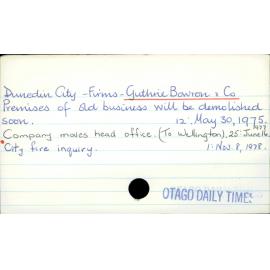 Dunedin City - Firms - Guthrie Bowron & Co
Premises of old business will be demolished
soon. 12: May 30, 1975.
Company moves head office. (To Wellington). 25: June 14 1977
City fire inquiry. 1: Nov. 8, 1978.
OTAGO DAILY TIMES